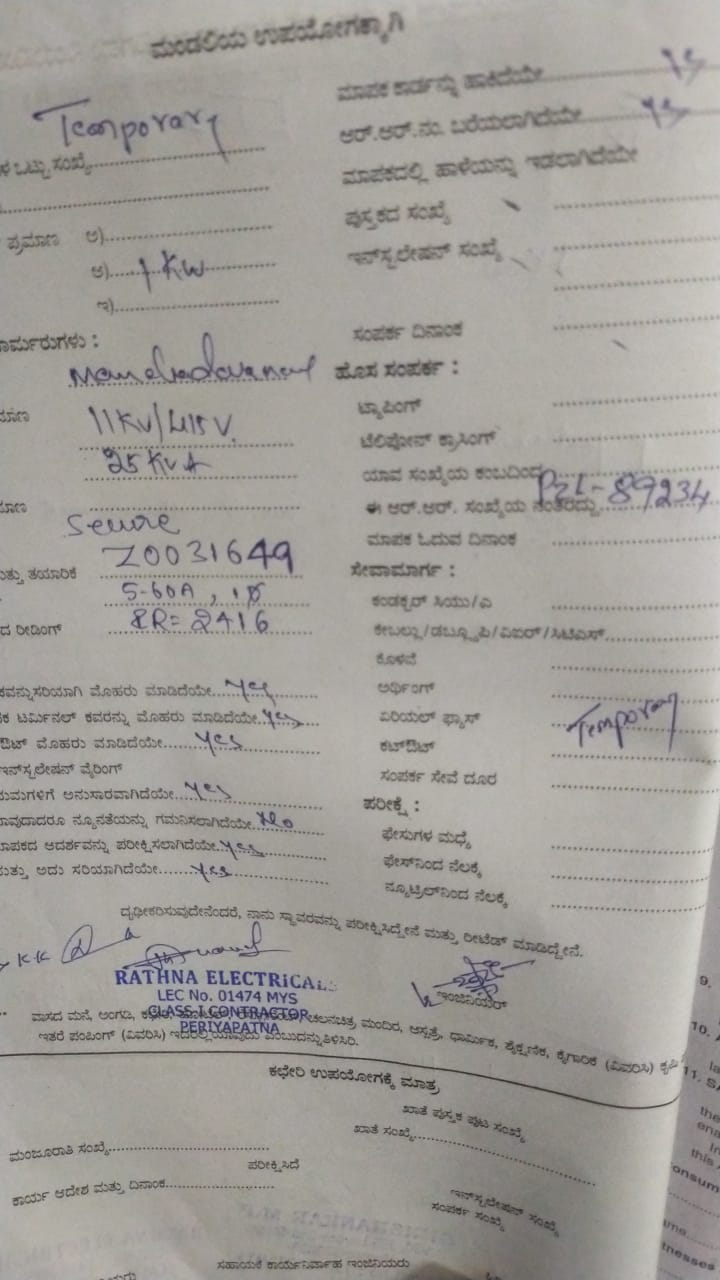 ಮಂಡಲಿಯ ಉಪಯೋಗಕ್ಕಾಗಿ
Temporary
ಳ ಒಟ್ಟು ಸಂಖ್ಯೆ
ಪ್ರಮಾಣ ಅ)
ಆ) 1 KW
ಇ)
ಾರ್ಮರುಗಳು :
11KV/415V.
ಮಾಣ
25 KVA
ಮಾಣ
Secure
ಮತ್ತು ತಯಾರಿಕೆ Z0031649
5-60A, 1Ø
ದ ರೀಡಿಂಗ್ RR= 2416
ಕವನ್ನುಸರಿಯಾಗಿ ಮೊಹರು ಮಾಡಿದೆಯೇ Yes
ಕ ಟರ್ಮಿನಲ್ ಕವರನ್ನು ಮೊಹರು ಮಾಡಿದೆಯೇ Yes
ಔಟ್ ಮೊಹರು ಮಾಡಿದೆಯೇ Yes
ಇನ್‌ಸ್ಟಲೇಷನ್ ವೈರಿಂಗ್
ಯಮಗಳಿಗೆ ಅನುಸಾರವಾಗಿದೆಯೇ Yes
ಾವುದಾದರೂ ನ್ಯೂನತೆಯನ್ನು ಗಮನಿಸಲಾಗಿದೆಯೇ No
ಮಾಪಕದ ಆದರ್ಶವನ್ನು ಪರೀಕ್ಷಿಸಲಾಗಿದೆಯೇ Yes
ಮತ್ತು ಅದು ಸರಿಯಾಗಿದೆಯೇ Yes
ಮಾಪಕ ಕಾರ್ಡನ್ನು ಹಾಕಿದೆಯೇ Ys
ಆರ್.ಆರ್.ನಂ. ಬರೆಯಲಾಗಿದೆಯೇ Ys
ಮಾಪಕದಲ್ಲಿ ಹಾಳೆಯನ್ನು ಇಡಲಾಗಿದೆಯೇ
ಪುಸ್ತಕದ ಸಂಖ್ಯೆ
ಇನ್‌ಸ್ಟಲೇಷನ್ ಸಂಖ್ಯೆ
ಸಂಪರ್ಕ ದಿನಾಂಕ
ಹೊಸ ಸಂಪರ್ಕ :
ಟ್ಯಾಪಿಂಗ್
ಟೆಲಿಫೋನ್ ಕ್ರಾಸಿಂಗ್
ಯಾವ ಸಂಖ್ಯೆಯ ಕಂಬದಿಂದ
ಈ ಆರ್.ಆರ್. ಸಂಖ್ಯೆಯ ನಂತರದ್ದು PZL-89234
ಮಾಪಕ ಓದುವ ದಿನಾಂಕ
ಸೇವಾಮಾರ್ಗ :
ಕಂಡಕ್ಟರ್ ಸಿಯು/ಎ
ಕೇಬಲ್ಲು/ಡಬ್ಲ್ಯೂಪಿ/ವಿಐಆರ್/ಸಿಟಿಎಸ್
ಕೊಳವೆ
ಅರ್ಥಿಂಗ್
ಏರಿಯಲ್ ಫ್ಯೂಸ್ Temporary
ಕಟ್‌ಔಟ್
ಸಂಪರ್ಕ ಸೇವೆ ದೂರ
ಪರೀಕ್ಷೆ :
ಫೇಸುಗಳ ಮಧ್ಯೆ
ಫೇಸ್‌ನಿಂದ ನೆಲಕ್ಕೆ
ನ್ಯೂಟ್ರಲ್‌ನಿಂದ ನೆಲಕ್ಕೆ
ದೃಢೀಕರಿಸುವುದೇನೆಂದರೆ, ನಾನು ಸ್ಥಾವರವನ್ನು ಪರೀಕ್ಷಿಸಿದ್ದೇನೆ ಮತ್ತು ರೀಟೆಡ್ ಮಾಡಿದ್ದೇನೆ.
RATHNA ELECTRICALS
LEC No. 01474 MYS
CLASS-I CONTRACTOR
PERIYAPATNA
ಇಂಜಿನಿಯರ್
ವಾಸದ ಮನೆ, ಅಂಗಡಿ, ಚಲನಚಿತ್ರ ಮಂದಿರ, ಆಸ್ಪತ್ರೆ, ಧಾರ್ಮಿಕ, ಶೈಕ್ಷಣಿಕ, ಕೈಗಾರಿಕೆ (ವಿವರಿಸಿ) ಕೃಷಿ
ಇತರೆ ಪಂಪಿಂಗ್ (ವಿವರಿಸಿ) ಎಂಬುದನ್ನುತಿಳಿಸಿರಿ.
ಕಛೇರಿ ಉಪಯೋಗಕ್ಕೆ ಮಾತ್ರ
ಖಾತೆ ಪುಸ್ತಕ ಪುಟ ಸಂಖ್ಯೆ
ಮಂಜೂರಾತಿ ಸಂಖ್ಯೆ
ಖಾತೆ ಸಂಖ್ಯೆ
ಪರೀಕ್ಷಿಸಿದೆ
ಕಾರ್ಯ ಆದೇಶ ಮತ್ತು ದಿನಾಂಕ
ಇನ್‌ಸ್ಟಲೇಷನ್ ಸಂಖ್ಯೆ
ಸಂಪರ್ಕ ಸಂಖ್ಯೆ
ಸಹಾಯಕ ಕಾರ್ಯನಿರ್ವಾಹ ಇಂಜಿನಿಯರು
9.
10.
11.
the
this
onsum
tnesses